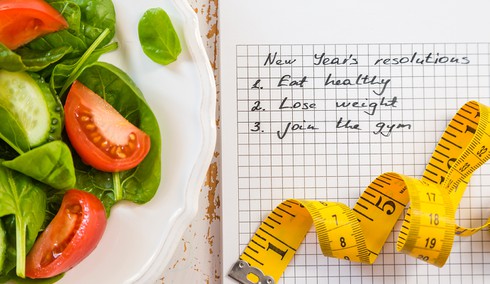 New Year's resolutions
1. Eat healthy
2. Lose weight
3. join the gym
1
5
7 8
17
18
19